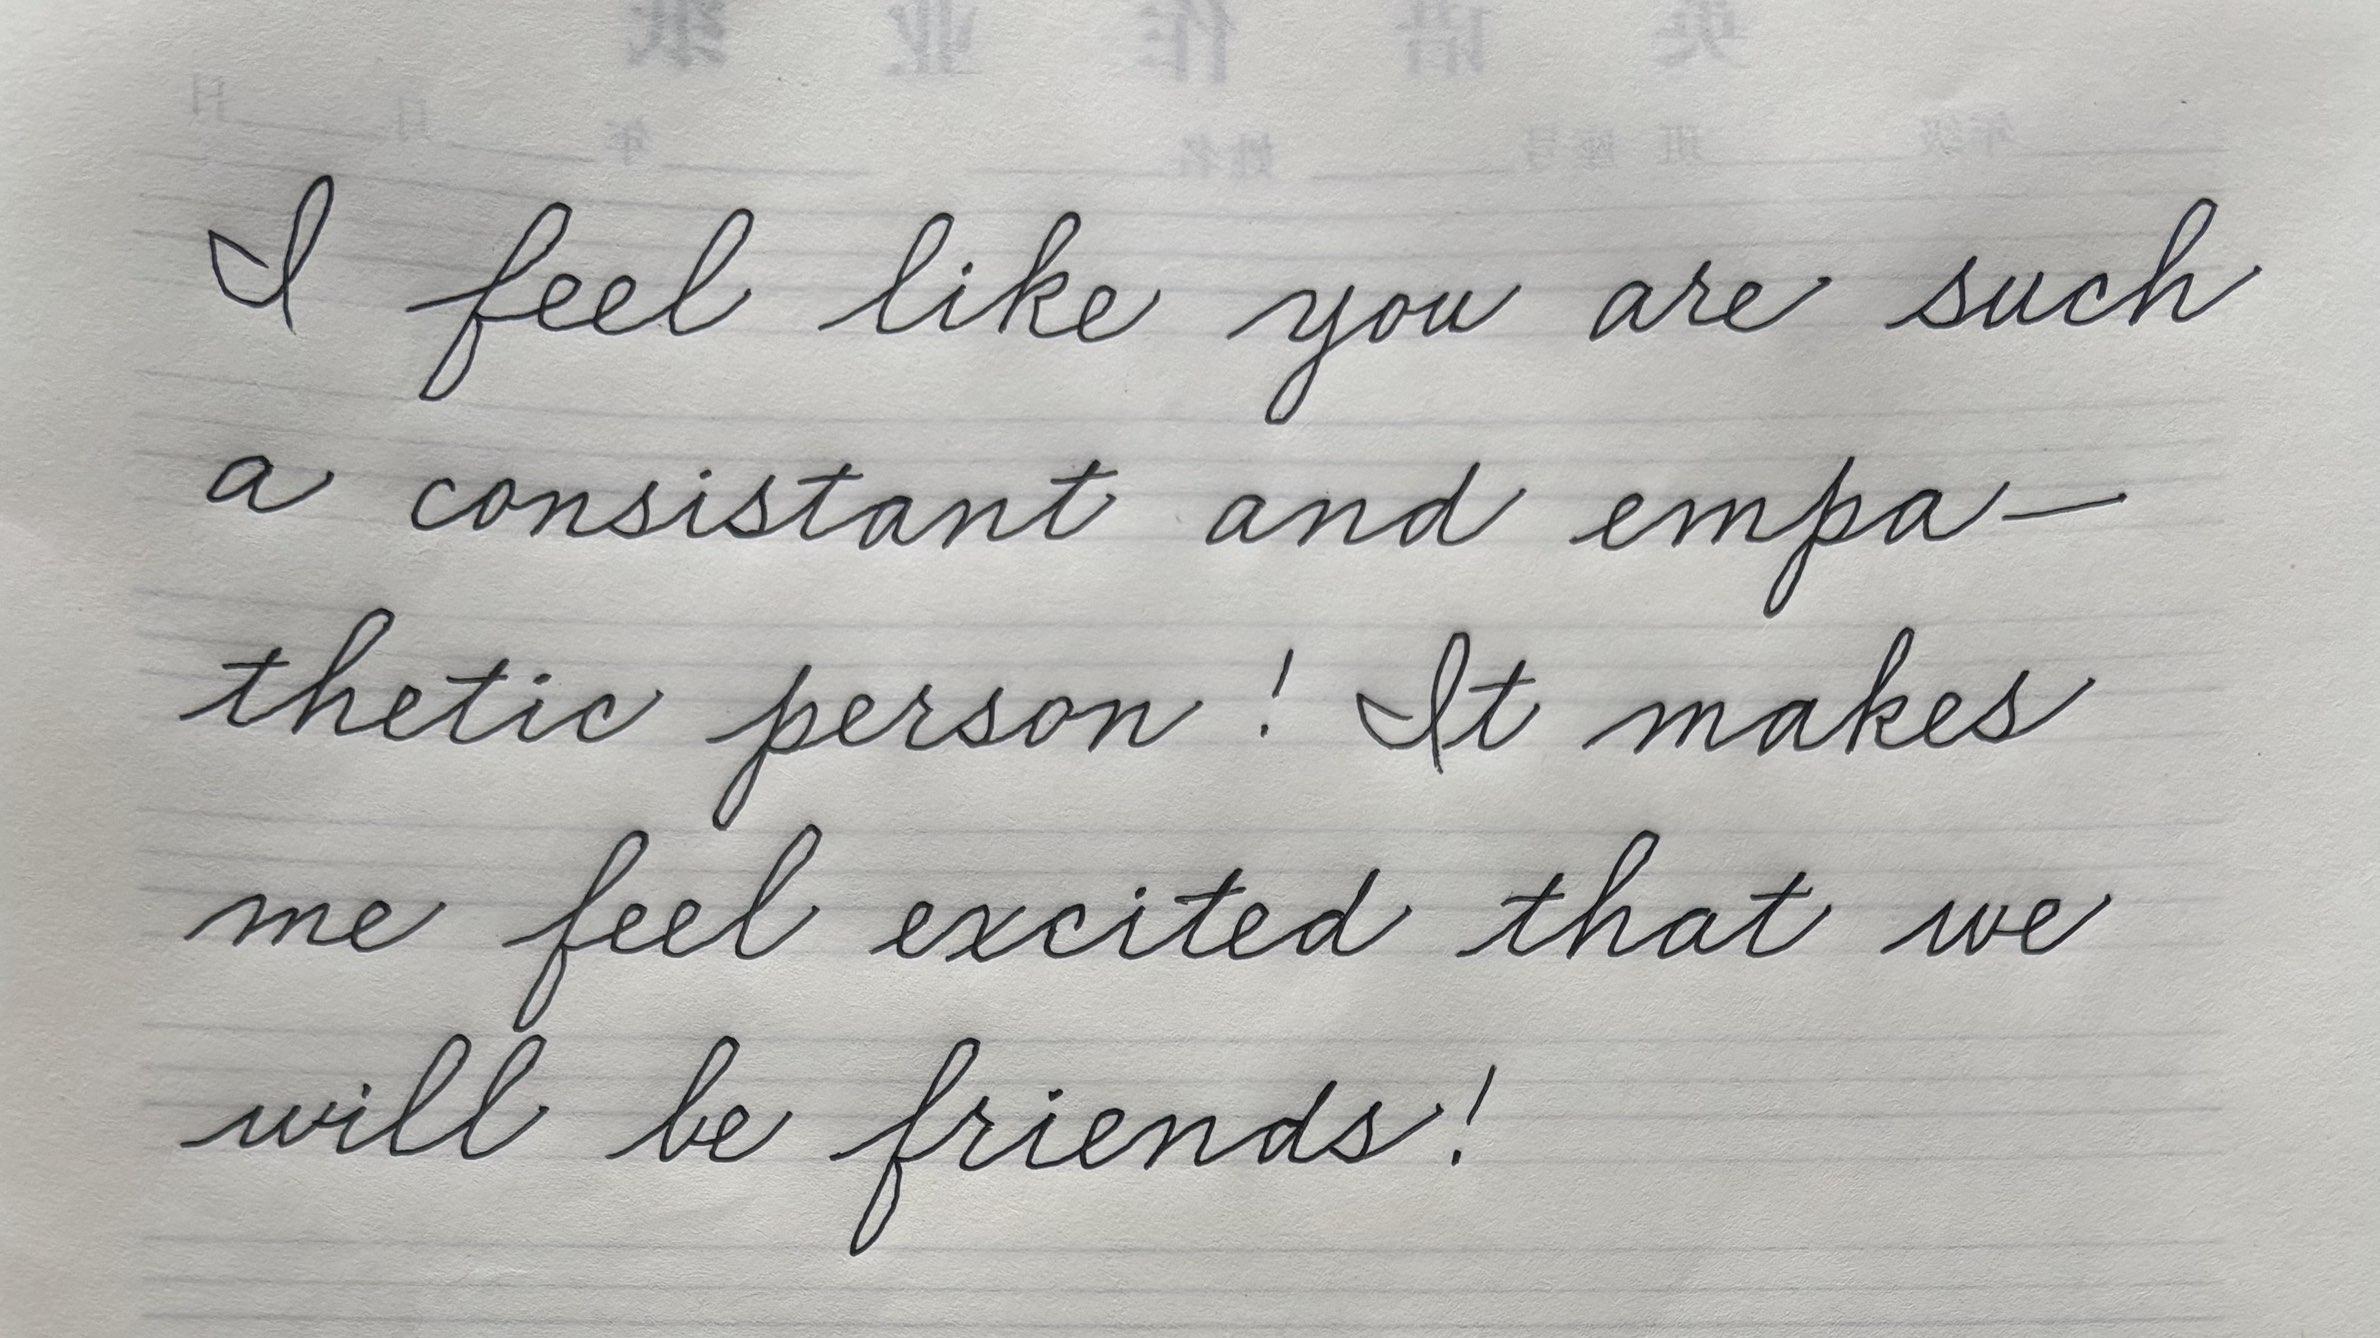 英语作业纸
年级 班 座号 姓名 年 月 日
I feel like you are such
a consistant and empa-
thetic person! It makes
me feel excited that we
will be friends!